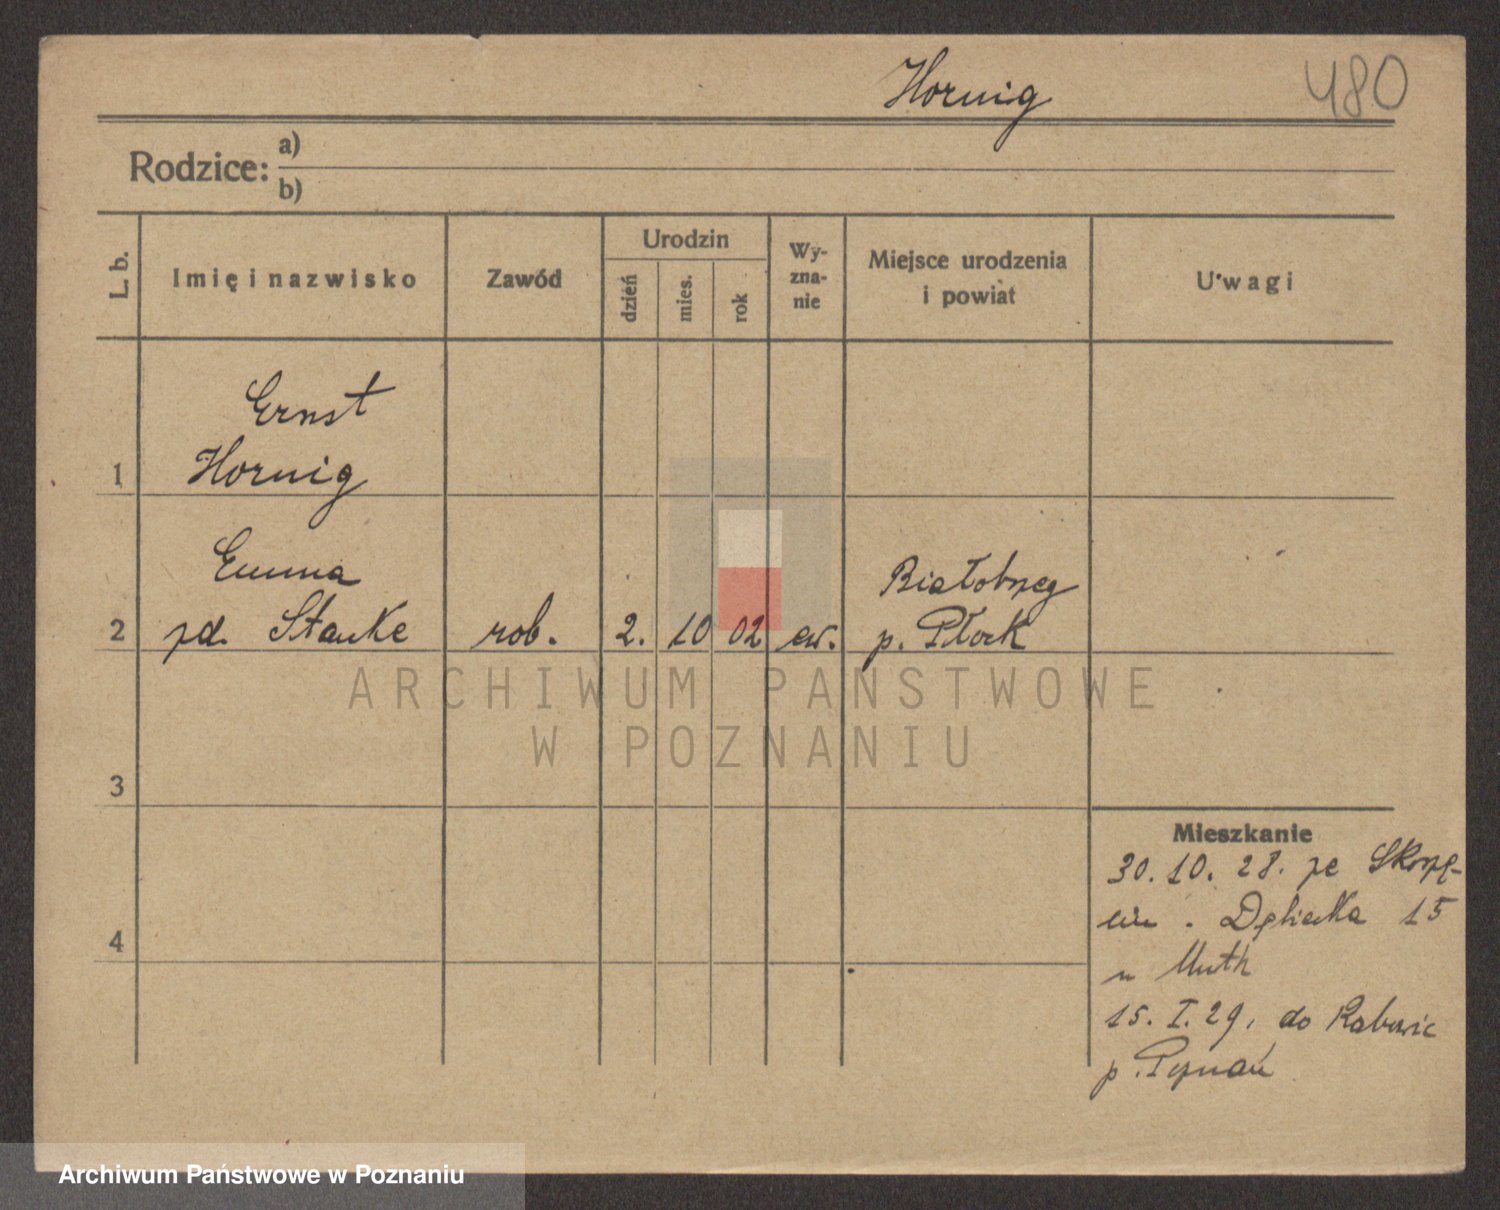 Hornig
480
Rodzice: a)
b)
L. b.
Imię i nazwisko
Zawód
Urodzin
dzień
mies.
rok
Wy-
zna-
nie
Miejsce urodzenia
i powiat
Uwagi
1
Ernst
Hornig
2
Emma
zd. Stanke
rob.
2.
10
02
ew.
Białobrzeg
p. Płock
3
4
Mieszkanie
30. 10. 28. ze Skorzę-
cin. Dębiecka 15
u Muth
15. I. 29. do Rabowic
p. Poznań
ARCHIWUM PAŃSTWOWE
W POZNANIU
Archiwum Państwowe w Poznaniu